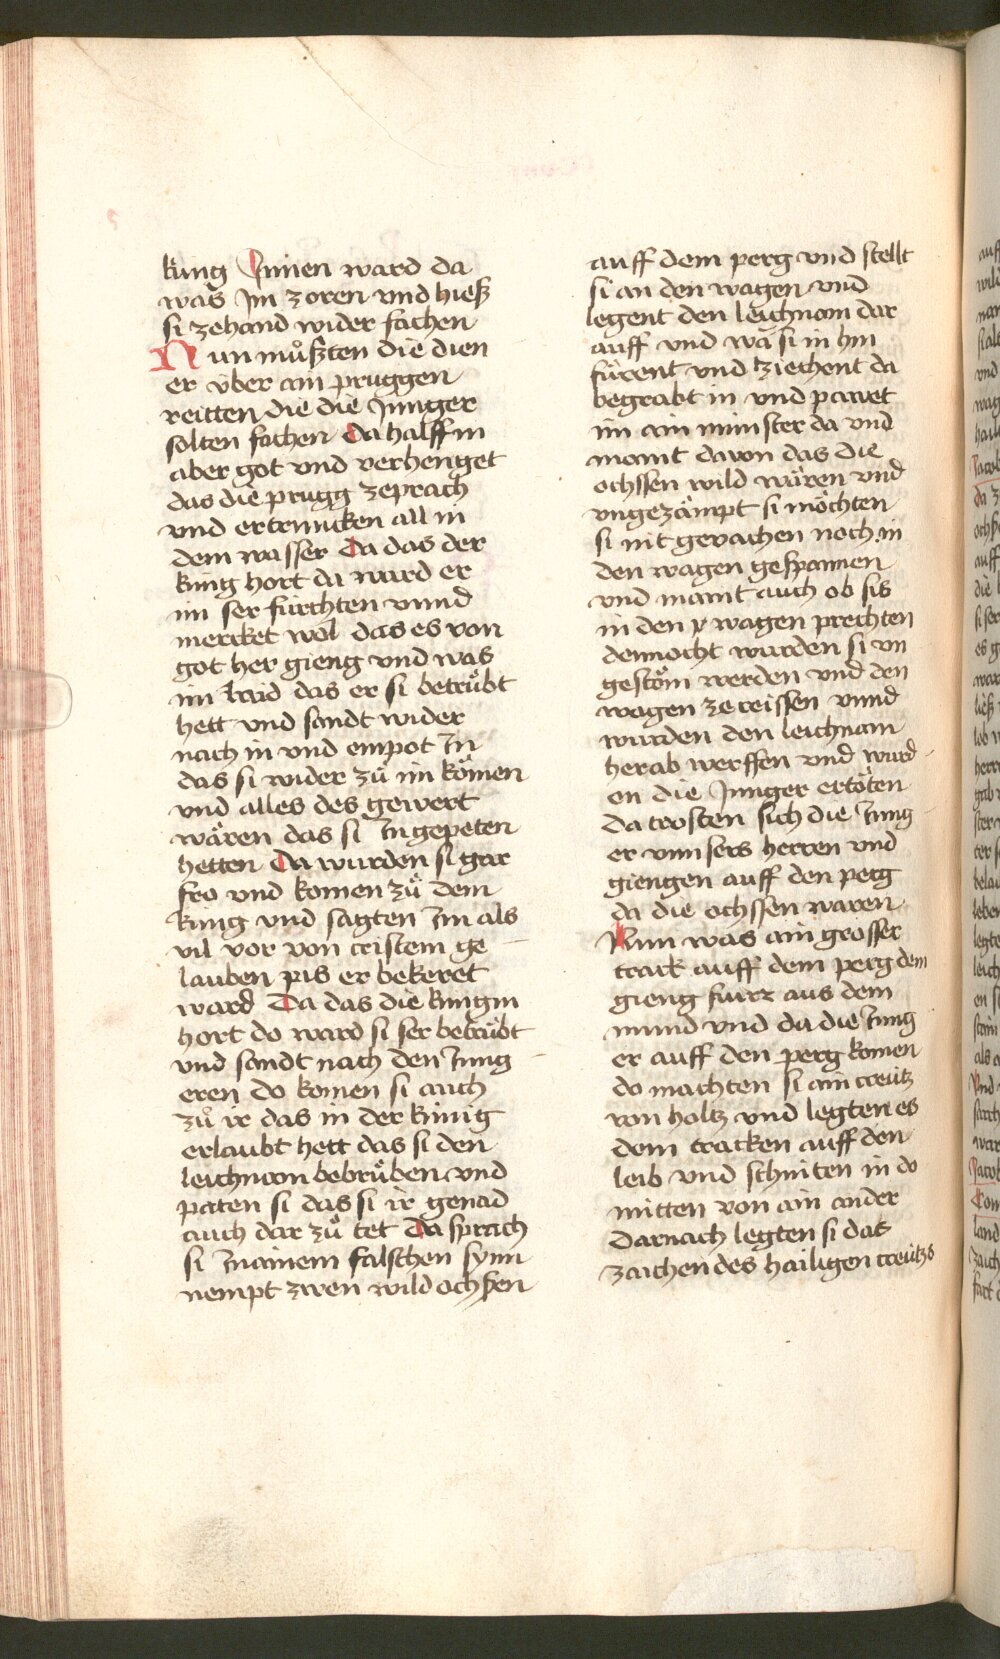 küng Innen ward da
was Im zoren vnd hieß
si zehand wider fachen
Nun můßten die dien
er über ain pruggen
reitten die die Junger
solten fachen Da halff in
aber got vnd verhenget
das die prugg zeprach
vnd ertruncken all in
dem wasser Da das der
küng hort da ward er
im ser fürchten vnnd
mercket wol das es von
got her gieng vnd was
im laid das er si betrůbt
hett vnd sandt wider
nach in vnd empot In
das si wider zů im kömen
vnd alles des gewert
wären das si In gepeten
hetten Da wurden si gar
fro vnd komen zů dem
küng vnd sagten Im als
vil vor von cristem ge
lauben pis er bekeret
ward Da das die küngin
hort do ward si ser betrübt
vnd sandt nach den Jung
eren do komen si auch
zů ir das in der künig
erlaubt hett das si den
leichnam begrůben vnd
paten si das si ir genad
auch dar zů tet Da sprach
si In ainem falschen synn
nempt zwen wild ochssen
auff dem perg vnd stellt
si an den wagen vnd
legent den leichnam dar
auff vnd wa si in hin
fürent vnd ziechent da
begrabt in vnd pawet
im ain münster da vnd
maint davon das die
ochssen wild wären vnd
vngezämpt si möchten
si nit gevachen noch in
den wagen gespannen
vnd maint auch ob sis
in den wagen prechten
dennocht wurden si vn
gestöm werden vnd den
wagen zereissen vnnd
wurden den leichnam
herab werffen vnd wurd
en die Junger ertöten
da trosten sich die Jung
er vnnsers herren vnd
giengen auff den perg
da die ochssen waren
Nun was ain grosser
track auff dem perg dem
gieng fuirz aus dem
mund vnd da die Jung
er auff den perg komen
do machten si ain creütz
von holtz vnd legten es
dem tracken auff den
leib vnd schniten in do
mitten von ain ander
Darnach legten si das
zaichen des hailigen creützs